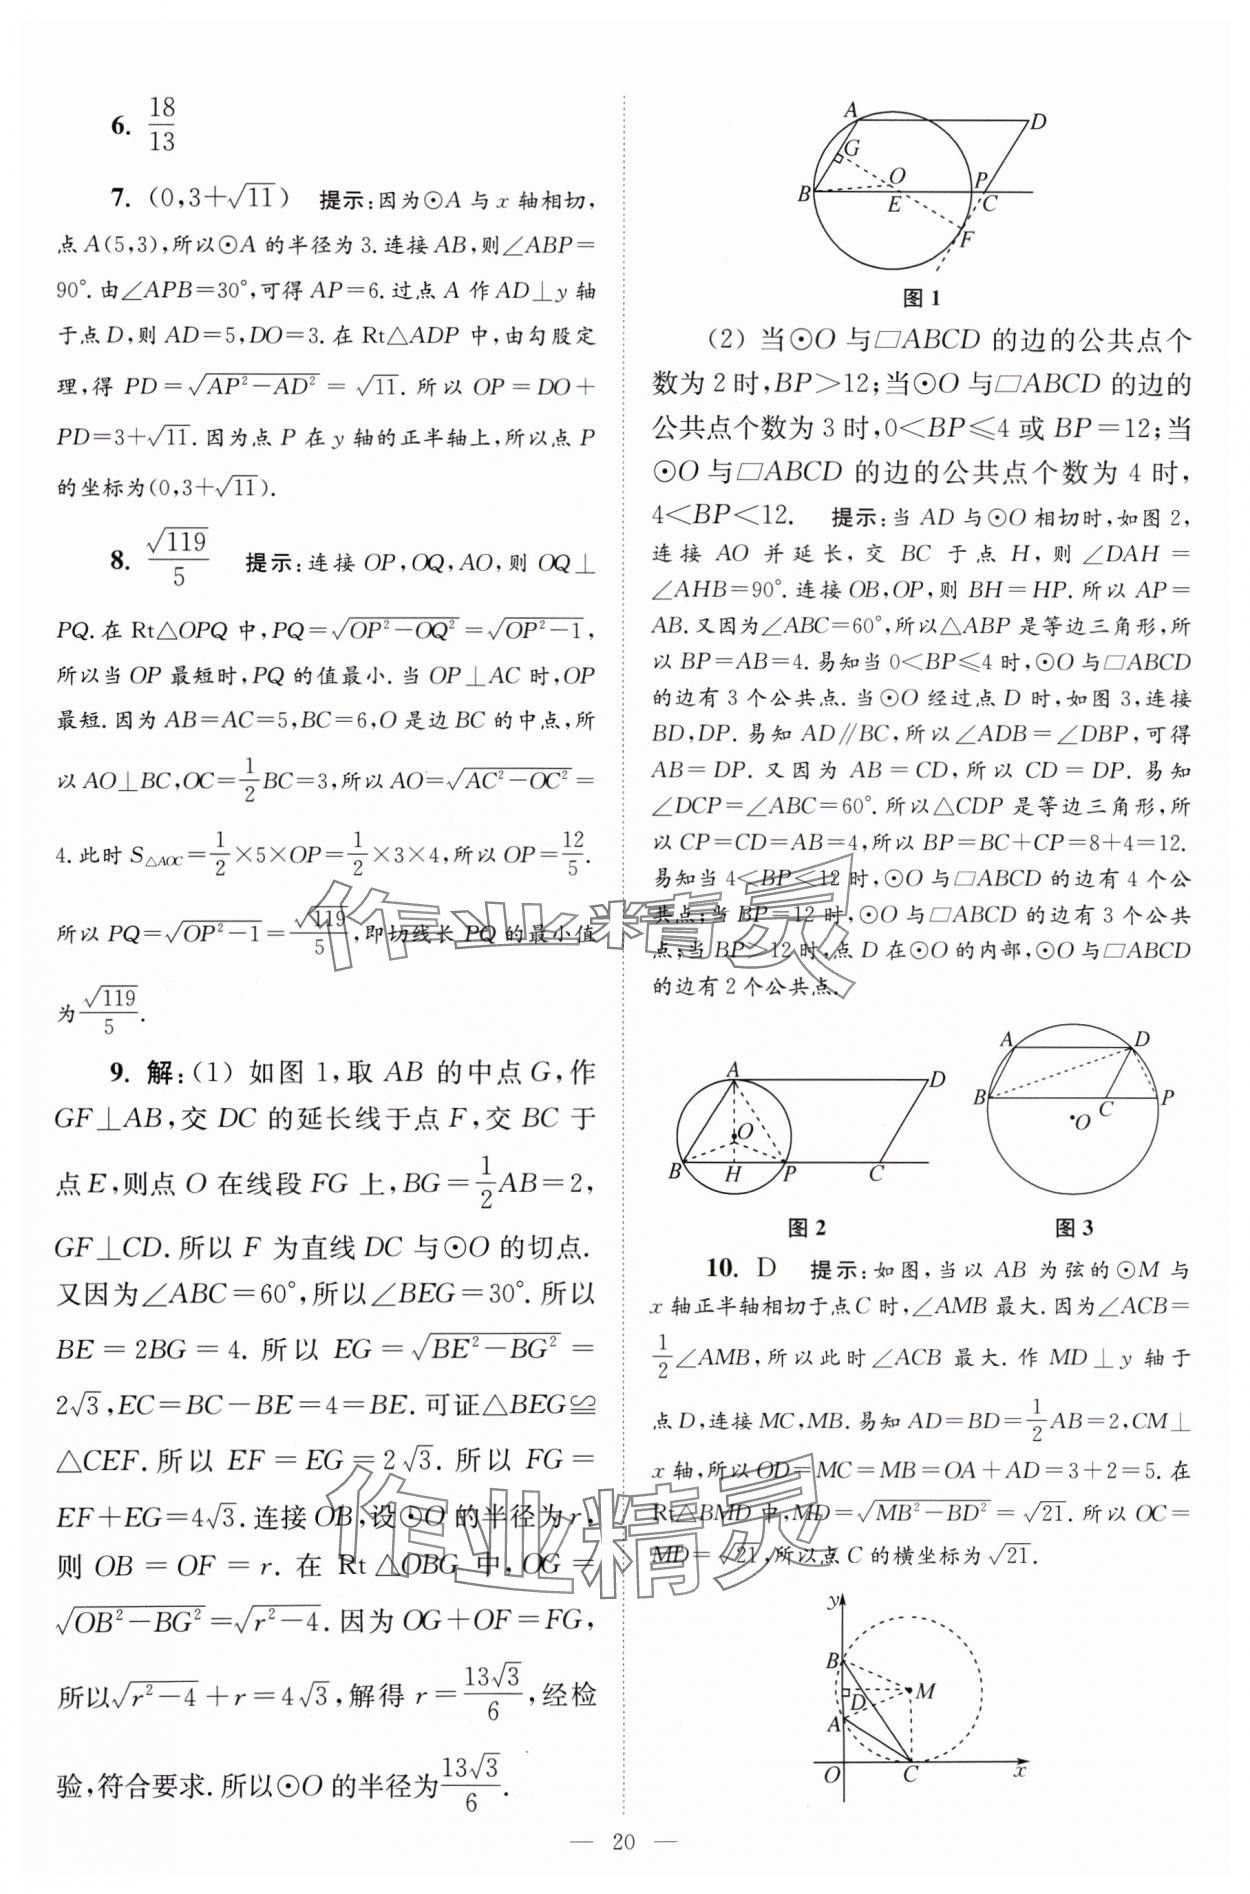 6. 18/13
7. (0,3+√11)　提示:因为⊙A 与 x 轴相切,
点 A(5,3),所以⊙A 的半径为 3. 连接 AB,则∠ABP=
90°. 由∠APB=30°,可得 AP=6. 过点 A 作 AD⊥y 轴
于点 D,则 AD=5,DO=3. 在 Rt△ADP 中,由勾股定
理,得 PD=√(AP²-AD²)=√11. 所以 OP=DO+
PD=3+√11. 因为点 P 在 y 轴的正半轴上,所以点 P
的坐标为(0,3+√11).
8. √119/5　提示:连接 OP,OQ,AO,则 OQ⊥
PQ. 在 Rt△OPQ 中,PQ=√(OP²-OQ²)=√(OP²-1),
所以当 OP 最短时,PQ 的值最小. 当 OP⊥AC 时,OP
最短. 因为 AB=AC=5,BC=6,O 是边 BC 的中点,所
以 AO⊥BC,OC=1/2BC=3,所以 AO=√(AC²-OC²)=
4. 此时 S△AOC=1/2×5×OP=1/2×3×4,所以 OP=12/5.
所以 PQ=√(OP²-1)=√119/5,即切线长 PQ 的最小值
为√119/5.
9. 解:(1) 如图 1,取 AB 的中点 G,作
GF⊥AB,交 DC 的延长线于点 F,交 BC 于
点 E,则点 O 在线段 FG 上,BG=1/2AB=2,
GF⊥CD. 所以 F 为直线 DC 与⊙O 的切点.
又因为∠ABC=60°,所以∠BEG=30°. 所以
BE=2BG=4. 所以 EG=√(BE²-BG²)=
2√3,EC=BC-BE=4=BE. 可证△BEG≌
△CEF. 所以 EF=EG=2√3. 所以 FG=
EF+EG=4√3. 连接 OB,设⊙O 的半径为 r,
则 OB=OF=r. 在 Rt△OBG 中,OG=
√(OB²-BG²)=√(r²-4). 因为 OG+OF=FG,
所以√(r²-4)+r=4√3,解得 r=13√3/6,经检
验,符合要求. 所以⊙O 的半径为13√3/6.
A
D
G
O
P
B
E
C
F
图 1
(2) 当⊙O 与▱ABCD 的边的公共点个
数为 2 时,BP>12;当⊙O 与▱ABCD 的边的
公共点个数为 3 时,0<BP≤4 或 BP=12;当
⊙O 与▱ABCD 的边的公共点个数为 4 时,
4<BP<12.　提示:当 AD 与⊙O 相切时,如图 2,
连接 AO 并延长,交 BC 于点 H,则∠DAH=
∠AHB=90°. 连接 OB,OP,则 BH=HP. 所以 AP=
AB. 又因为∠ABC=60°,所以△ABP 是等边三角形,所
以 BP=AB=4. 易知当 0<BP≤4 时,⊙O 与▱ABCD
的边有 3 个公共点. 当⊙O 经过点 D 时,如图 3,连接
BD,DP. 易知 AD∥BC,所以∠ADB=∠DBP,可得
AB=DP. 又因为 AB=CD,所以 CD=DP. 易知
∠DCP=∠ABC=60°. 所以△CDP 是等边三角形,所
以 CP=CD=AB=4,所以 BP=BC+CP=8+4=12.
易知当 4<BP<12 时,⊙O 与▱ABCD 的边有 4 个公
共点;当 BP=12 时,⊙O 与▱ABCD 的边有 3 个公共
点;当 BP>12 时,点 D 在⊙O 的内部,⊙O 与▱ABCD
的边有 2 个公共点.
A
D
O
B
H
P
C
图 2
A
D
B
C
P
O
图 3
10. D　提示:如图,当以 AB 为弦的⊙M 与
x 轴正半轴相切于点 C 时,∠AMB 最大. 因为∠ACB=
1/2∠AMB,所以此时∠ACB 最大. 作 MD⊥y 轴于
点 D,连接 MC,MB. 易知 AD=BD=1/2AB=2,CM⊥
x 轴,所以 OD=MC=MB=OA+AD=3+2=5. 在
Rt△BMD 中,MD=√(MB²-BD²)=√21. 所以 OC=
MD=√21,所以点 C 的横坐标为√21.
y
B
D
M
A
O
C
x
作业精灵
作业精灵
— 20 —